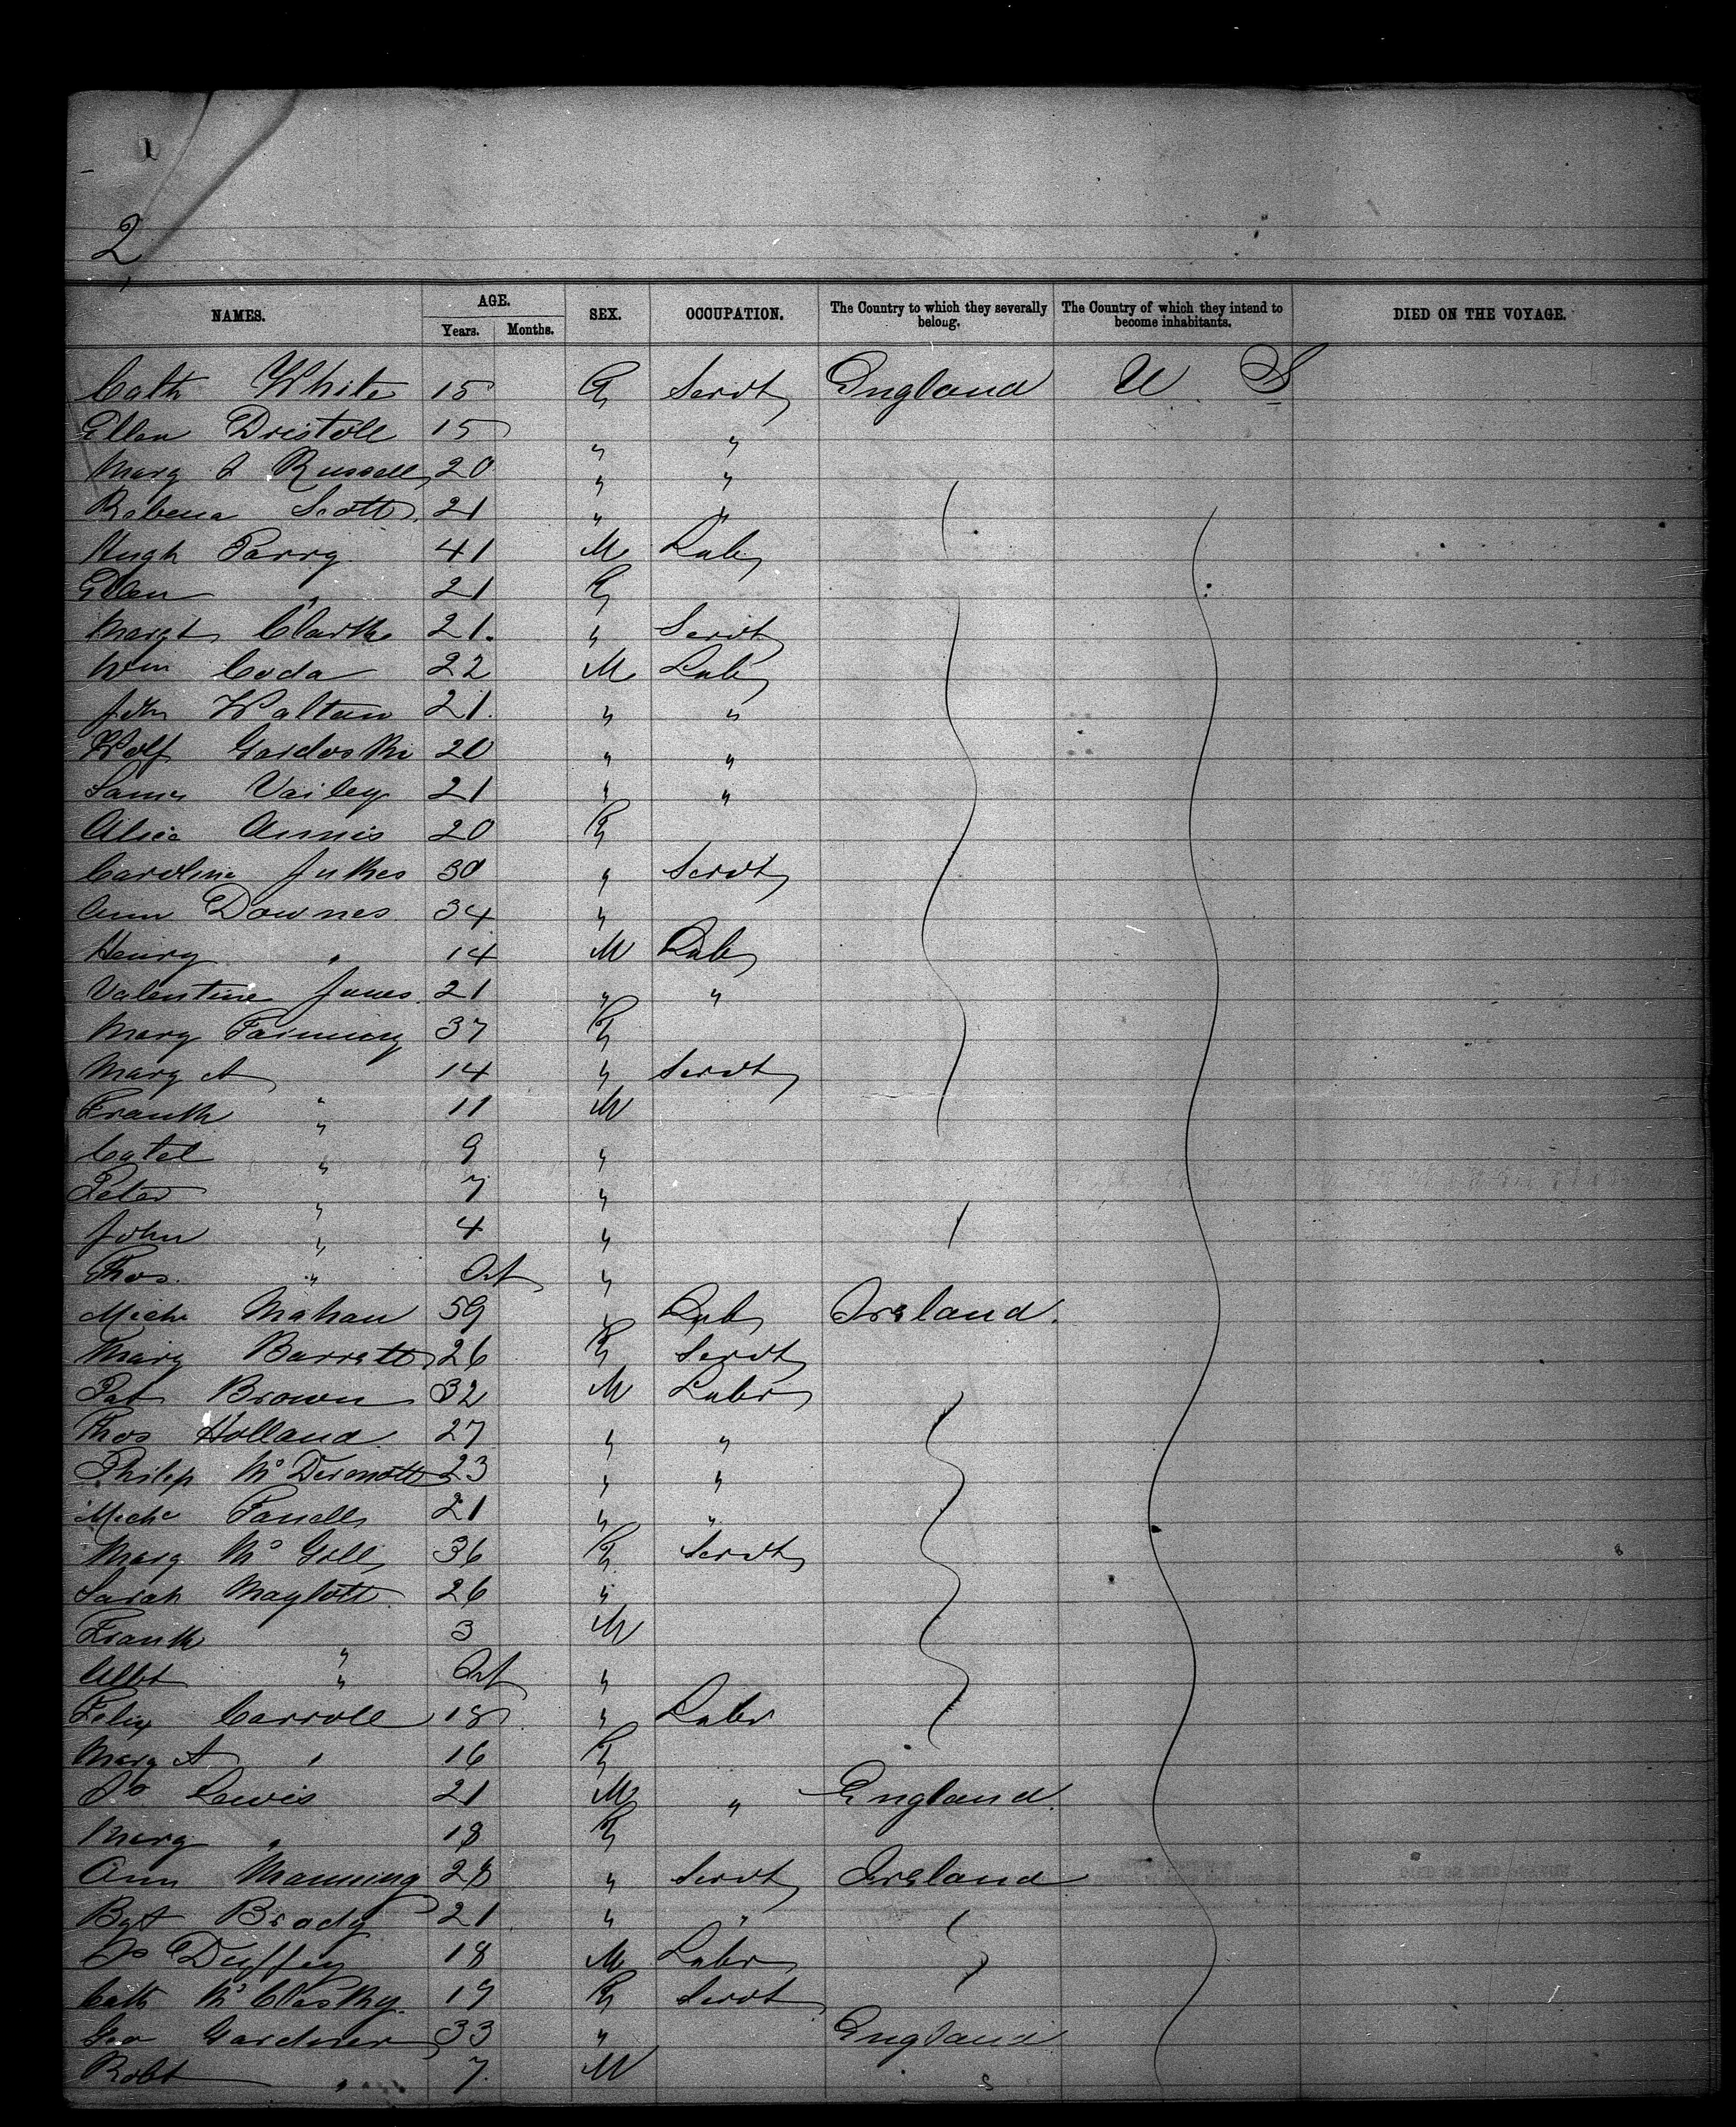 2
NAMES. AGE. SEX. OCCUPATION. The Country to which they severally belong. The Country of which they intend to become inhabitants. DIED ON THE VOYAGE.
Years. Months.
Cath White 15 F Servt England U S
Ellen Driscoll 15 " "
Mary A Russell 20 " "
Robena Scott 21 " "
Hugh Parry 41 M Lab
Ellen " 21 F
Margt Clarke 21 " Servt
Wm Coda 22 M Lab
John Walton 21 " "
Wolf Gardoski 20 " "
Vailey 21 " "
Alice Annis 20 F
Caroline Jukes 30 " Servt
Ann Downes 34 "
Henry " 14 M Lab
Valentine Jones 21 " "
Mary 37 F
Mary A " 14 " Servt
Frank " 11 M
" 9 "
Peter " 7 "
John " 4 "
Thos. " Inf "
Michl Mahan 59 " Lab Ireland
Mary Barrett 26 F Servt
Pat Brown 32 M Labr
Thos Holland 27 " "
Philip McDermott 23 " "
Michl 21 " "
Mary McGill 36 F Servt
Sarah Maylott 26 "
Frank " 3 M
Albt " Inf "
Felix Carroll 18 " Labr
Mary A " 16 F
Js Lewis 21 M " England
Mary " 18 F
Ann Manning 28 " Servt Ireland
Bgt Brady 21 " "
Js Duffey 18 M Labr
Cath McClosky 19 F Servt
Geo Gardner 33 " England
Robt " 7 M